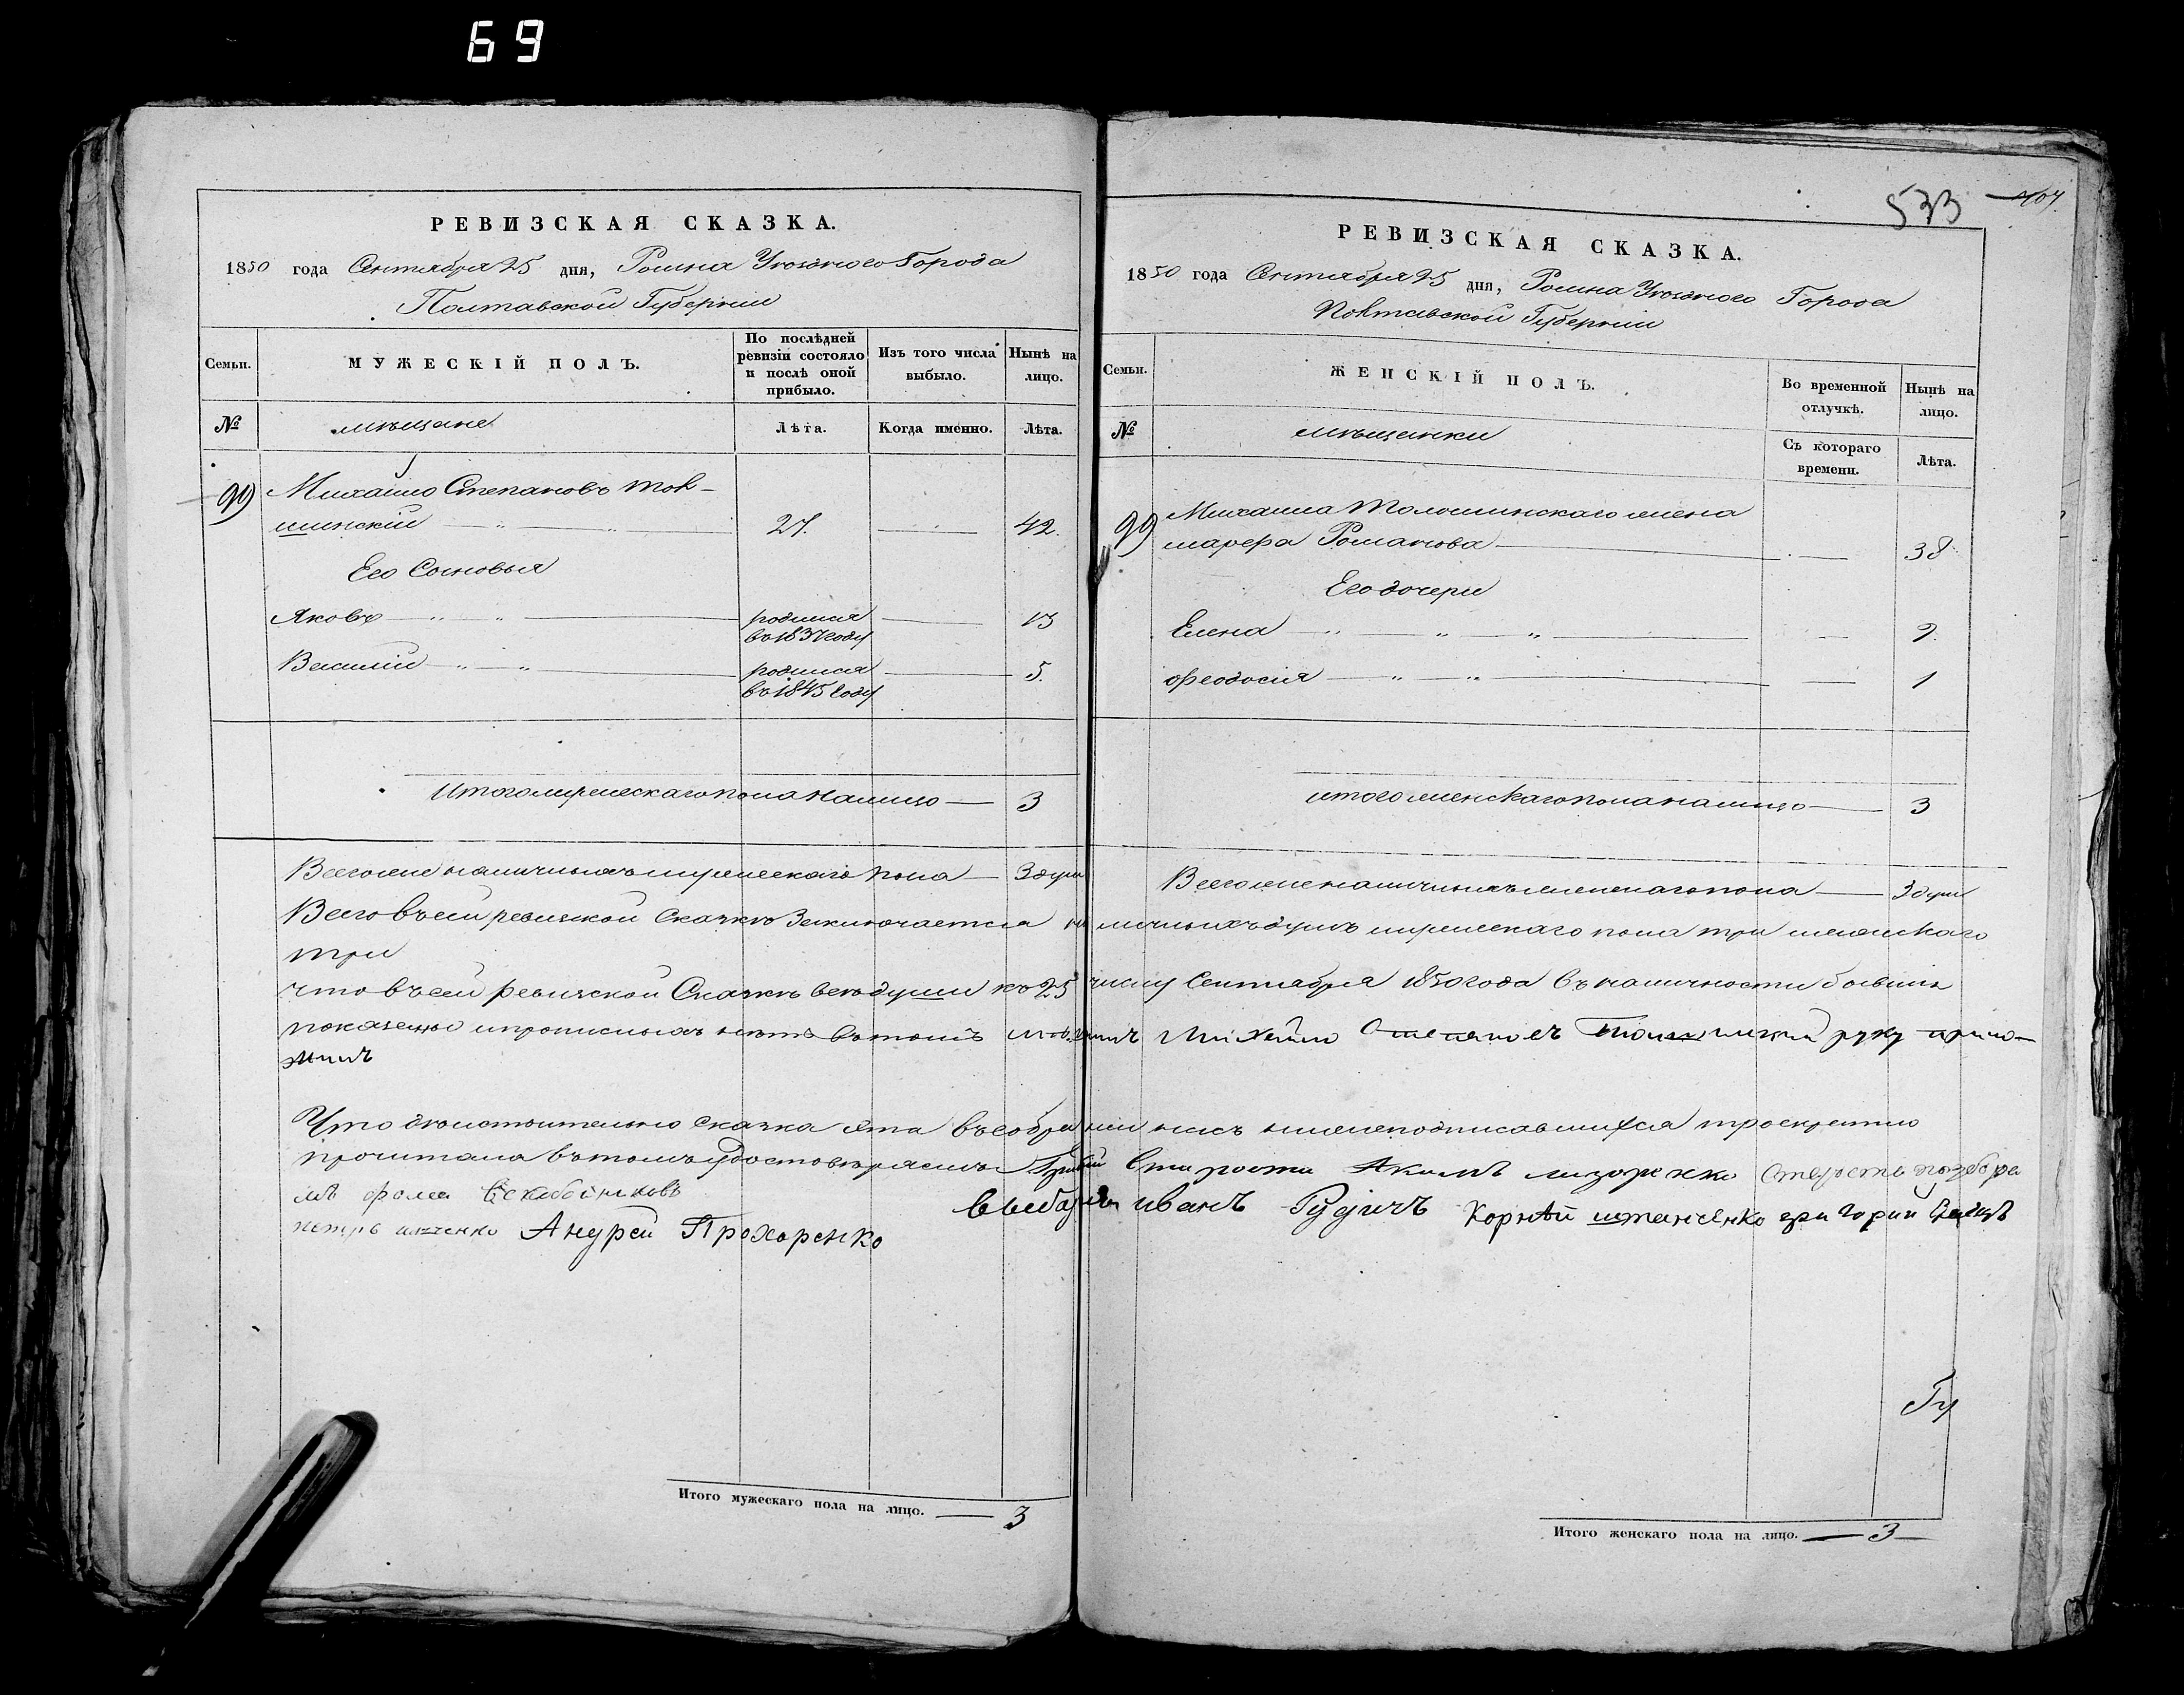 69
РЕВИЗСКАЯ СКАЗКА.
1850 года Сентября 25 дня, Ромна Уезднаго Города
Полтавской Губернии
Семьи.
МУЖЕСКІЙ ПОЛЪ.
По послѣдней ревизіи состояло и послѣ оной прибыло.
Изъ того числа выбыло.
Нынѣ на лицо.
№
мѣщане
Лѣта.
Когда именно.
Лѣта.
99
Михайло Степановъ
шинскій 27. 42.
Его Сыновья
Яковъ родился въ 1837 году 13
Василий родился въ 1845 году 5.
Итого мужескаго пола налицо 3
Всего же наличныхъ мужескаго пола 3 души
533
407.
РЕВИЗСКАЯ СКАЗКА.
1850 года Сентября 25 дня, Ромна Уезднаго Города
Полтавской Губернии
Семьи.
ЖЕНСКІЙ ПОЛЪ.
Во временной отлучкѣ.
Нынѣ на лицо.
№
мѣщанки
Съ котораго времени.
Лѣта.
99
Михаила жена
Романова 38
Его дочери
Елена 9.
Феодосия 1
итого женскаго пола налицо 3
Всего же наличныхъ женскаго пола 3 души
Всего въ сей ревизской Сказкѣ Заключается наличныхъ душъ мужескаго пола три женскаго
три
что въ сей ревизской Сказкѣ все души къ 25 числу Сентября 1850 года въ наличности бывшия
показаны и прописныхъ нѣтъ въ томъ Михайло руку прило-
жилъ
Что дѣйствительно сказка эта въ собрании насъ нижеподписавшихся троекратно
прочитана въ томъ удостовѣряемъ Староста Акимъ
Фома
выборн иванъ Корнѣй григорий
петръ Андрей Прохоренко
Итого мужескаго пола на лицо. 3
Итого женскаго пола на лицо. 3